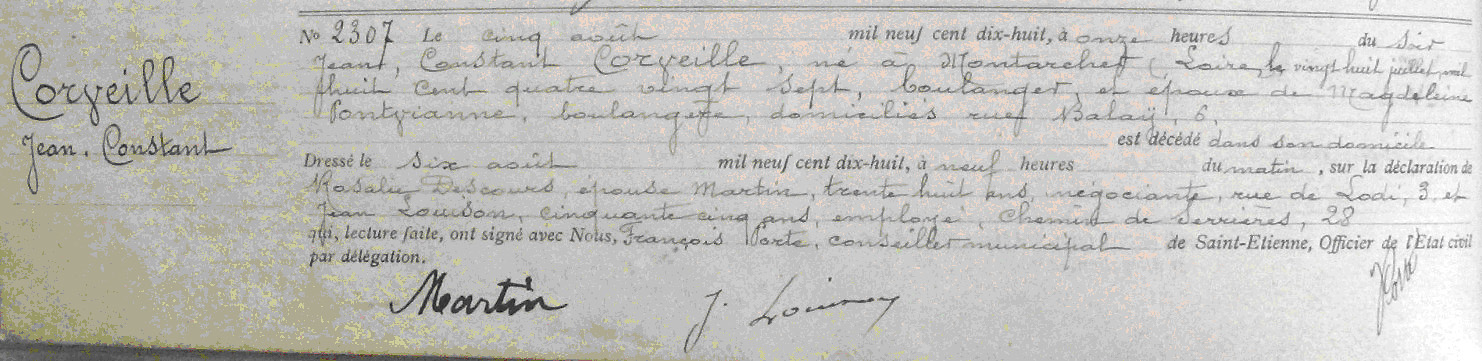 Corveille
Jean, Constant
No 2307 Le cinq août mil neuf cent dix-huit, à onze heures du soir
Jean, Constant Corveille, né à Montarcher (Loire, le vingt huit juillet mil
huit cent quatre vingt sept, boulanger, et époux de Magdeleine
Pontvianne, boulangère, domiciliés rue Balaÿ, 6,
est décédé dans son domicile
Dressé le six août mil neuf cent dix-huit, à neuf heures du matin, sur la déclaration de
Rosalie Descours, épouse Martin, trente huit ans, négociante, rue de Lodi, 3, et
Jean Louison, cinquante cinq ans, employé, Chemin de 28
qui, lecture faite, ont signé avec Nous, François Porte, conseiller municipal de Saint-Etienne, Officier de l'Etat civil
par délégation.
Martin J.